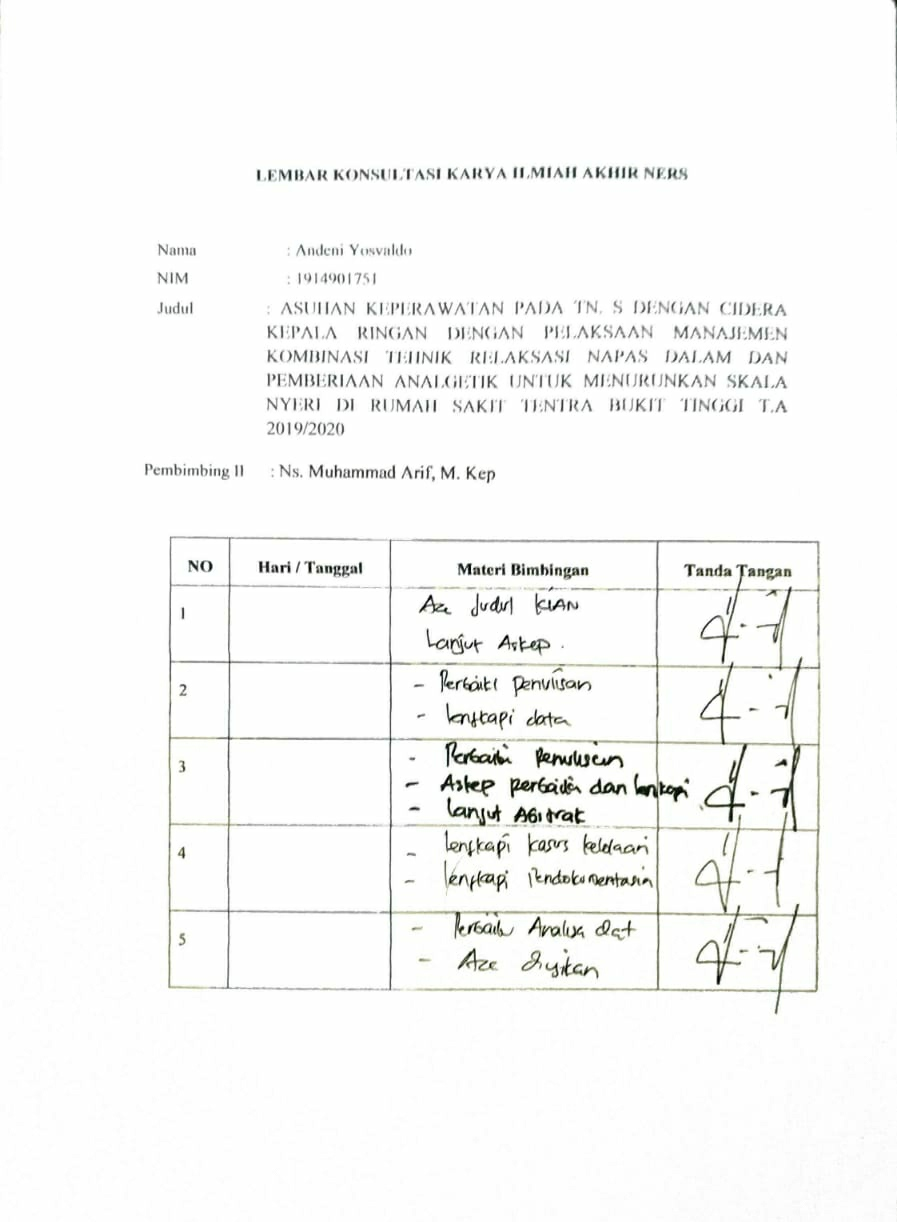 LEMBAR KONSULTASI KARYA ILMIAH AKHIR NERS
Nama : Andeni Yosvaldo
NIM : 1914901751
Judul : ASUHAN KEPERAWATAN PADA TN. S DENGAN CIDERA
KEPALA RINGAN DENGAN PELAKSAAN MANAJEMEN
KOMBINASI TEHNIK RELAKSASI NAPAS DALAM DAN
PEMBERIAAN ANALGETIK UNTUK MENURUNKAN SKALA
NYERI DI RUMAH SAKIT TENTRA BUKIT TINGGI T.A
2019/2020
Pembimbing II : Ns. Muhammad Arif, M. Kep
NO Hari / Tanggal Materi Bimbingan Tanda Tangan
1 Acc Judul KIAN
Lanjut Askep.
2 - Perbaiki penulisan
- lengkapi data
3 - Perbaiki penulisan
- Askep perbaiki dan lengkapi
- Lanjut
4 - lengkapi kasus kelolaan
- lengkapi
5 - Perbaiki Analisa dat
- Acc diujikan